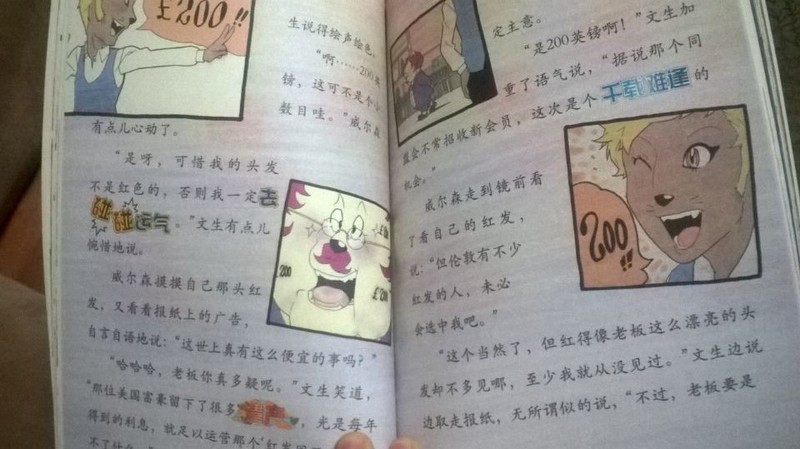 £200
生说得绘声绘色。
“啊……200英
镑，这可不是个小
数目哇。”威尔森
有点儿心动了。
“是呀，可惜我的头发
不是红色的，否则我一定去
碰碰运气。”文生有点儿
惋惜地说。
200
£200
威尔森摸摸自己那头红
发，又看看报纸上的广告，
自言自语地说：“这世上真有这么便宜的事吗？”
“哈哈哈，老板你真多疑呢。”文生笑道，
“那位美国富豪留下了很多遗产，光是每年
得到的利息，就足以运营那个‘红发同
不了什么
定主意。
“是200英镑啊！”文生加
重了语气说，“据说那个同
盟会不常招收新会员，这次是个千载难逢的
机会。”
威尔森走到镜前看
了看自己的红发，
说：“但伦敦有不少
红发的人，未必
会选中我吧。”
200!!
“这个当然了，但红得像老板这么漂亮的头
发却不多见哪，至少我就从没见过。”文生边说
边取走报纸，无所谓似的说，“不过，老板要是